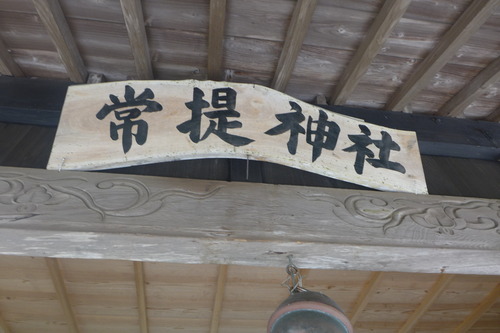 常提神社